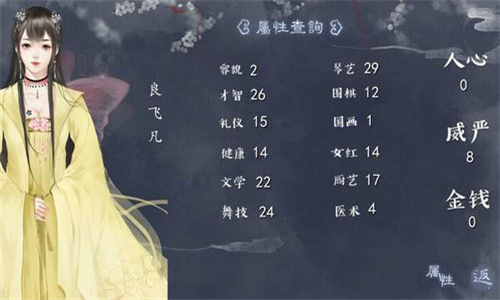 属性查詢
良飞凡
容貌 2
琴艺 29
才智 26
围棋 12
礼仪 15
国画 1
健康 14
女红 14
文学 22
厨艺 17
舞技 24
医术 4
人心
0
威严
8
金钱
0
属性
返